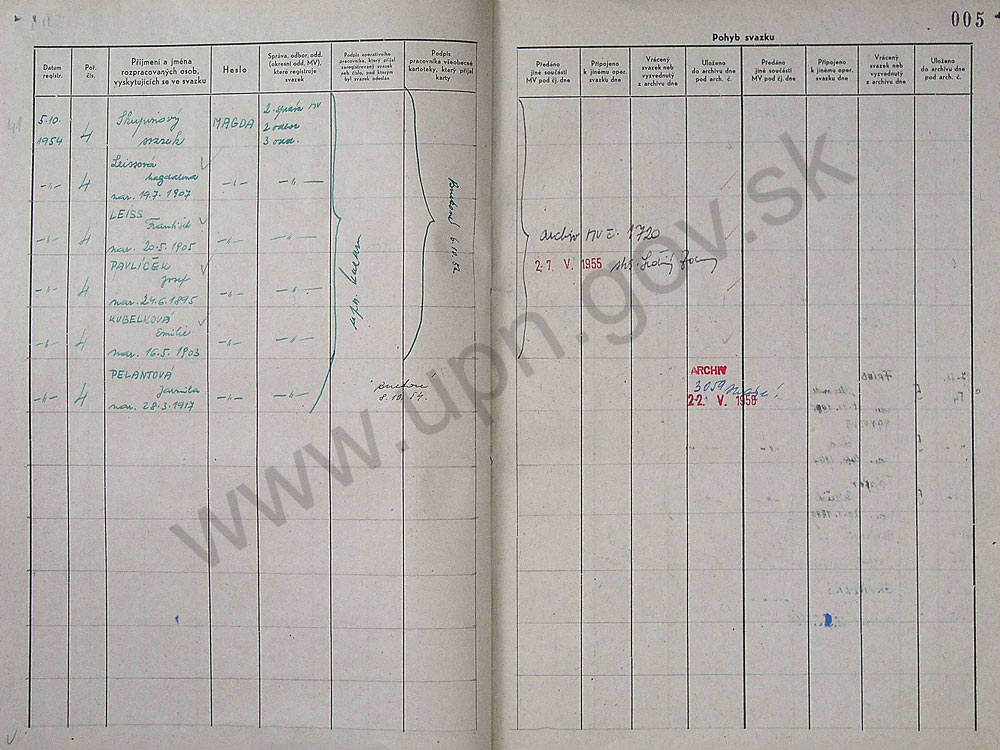 005
Pohyb svazku
Datum
registr.
Poř.
čís.
Příjmení a jména
rozpracovaných osob,
vyskytujících se ve svazku
Heslo
Správa, odbor, odd.
(okresní odd. MV),
které registruje
svazek
Podpis operativního
pracovníka, který přijal
zaregistrovaný svazek
neb číslo, pod kterým
byl svazek odeslán
Podpis
pracovníka všeobecné
kartoteky, který přijal
karty
Předáno
jiné součásti
MV pod čj. dne
Připojeno
k jinému oper.
svazku dne
Vrácený
svazek neb
vyzvednutý
z archivu dne
Uloženo
do archivu dne
pod arch. č.
Předáno
jiné součásti
MV pod čj. dne
Připojeno
k jinému oper.
svazku dne
Vrácený
svazek neb
vyzvednutý
z archivu dne
Uloženo
do archivu dne
pod arch. č.
5.10.
1954
4
Skupinový
svazek
MAGDA
2. správa MV
2 odbor
3 odd.
-"- 4
Leissová
Magdalena
nar. 19.7.1907
-"- -"-
LEISS
František
-"- 4
nar. 20.5.1905
-"- -"-
archiv MV č. 1720
27. V. 1955
PAVLÍČEK
Josef
-"- 4
nar. 24.6.1895
-"- -"-
KUBELKOVÁ
Emilie
-"- 4
nar. 16.5.1903
-"- -"-
PELANTOVÁ
Jarmila
-"- 4
nar. 28.3.1917
-"- -"-
8.10.54.
ARCHIV
3059
22. V. 1958
www.upn.gov.sk